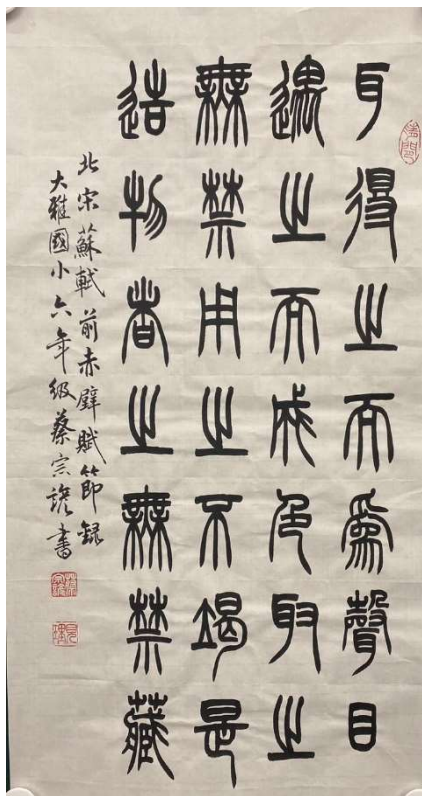 耳得之而為聲目
遇之而成色取之
無禁用之不竭是
造物者之無禁藏
北宋蘇軾前赤壁賦節録
大雅國小六年級蔡宗諺書